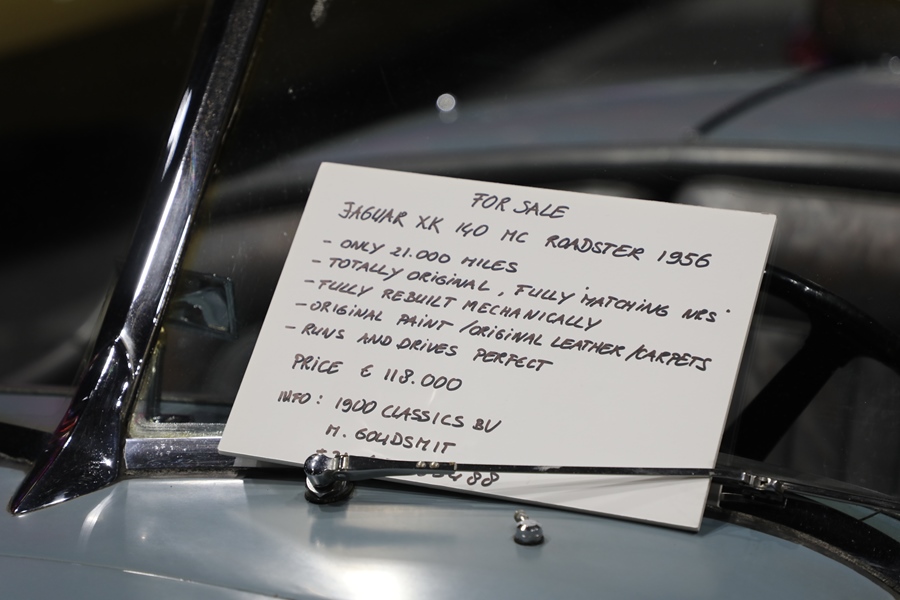 FOR SALE
JAGUAR XK 140 MC ROADSTER 1956
- ONLY 21.000 MILES
- TOTALLY ORIGINAL, FULLY 'MATCHING NRS'
- FULLY REBUILT MECHANICALLY
- ORIGINAL PAINT /ORIGINAL LEATHER /CARPETS
- RUNS AND DRIVES PERFECT
PRICE € 118.000
INFO: 1900 CLASSICS BV
M. GOUDSMIT